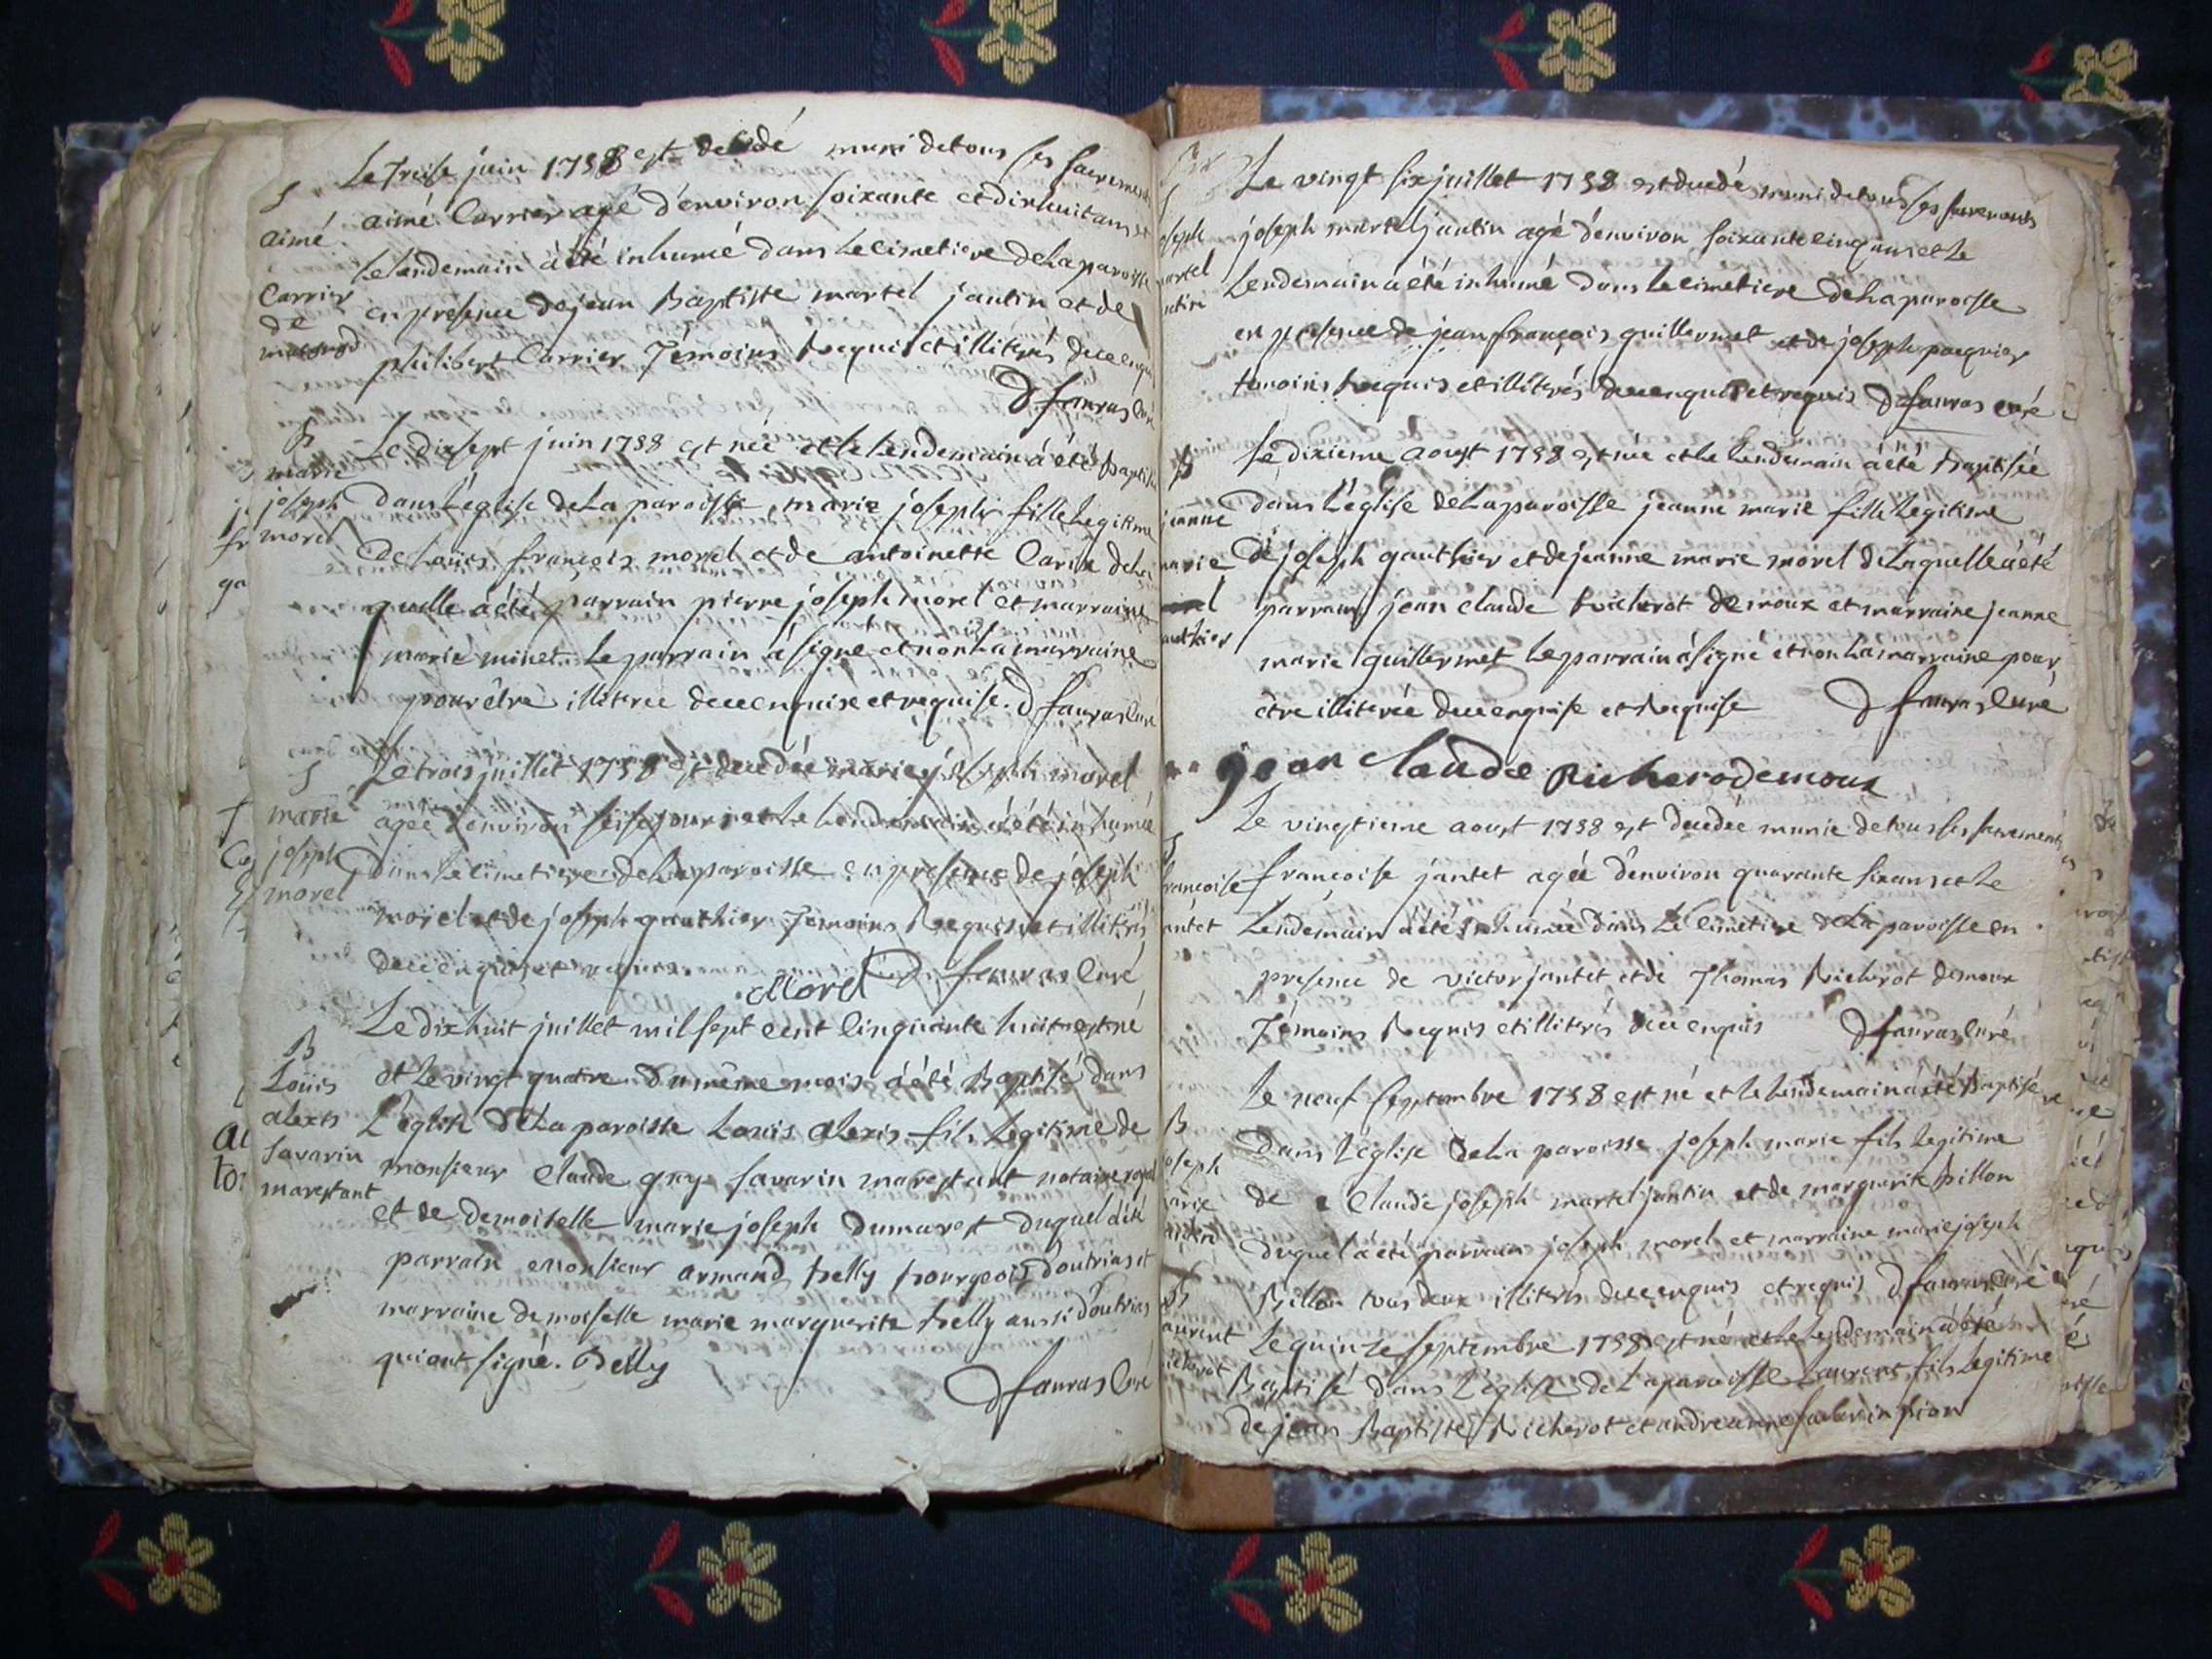 Le Treise juin 1758 est décédé muni de tous ses sacrements
S
aimé
Carrier
de
aimé Carrier agé d'environ soixante et dix huit ans et
le lendemain à été inhumé dans le cimetiere de la paroisse
en presence de jean Baptiste martel jantin et de
philibert Carrier Témoins Requis et illiterés de ce enquis
D fauras Curé
B
marie
joseph
morel
Le dix sept juin 1758 est née et le lendemain à été baptisée
dans l'église de la paroisse, marie joseph fille legitime
de Loüis françois morel et de antoinette Carrie de la
quelle à été parrain pierre joseph morel et marraine
marie minet. le parrain à signé et non la marraine
pour être illiterée de ce enquise et requise. D fauras Curé
S
marie
joseph
morel
Le trois juillet 1758 est decedée marie joseph morel
agée d'environ seise jours et le lendemain à été inhumée
dans le cimetiere de la paroisse en presence de joseph
morel et de joseph gauthier Temoins Requis et illiterés
de ce enquis et requis. D fauras Curé
Morel
B
Loüis
alexis
savarin
marestant
Le dix huit juillet mil sept cent Cinquante huit est né
et le vingt quatre du même mois à été Baptisé dans
L'église de La paroisse Louis alexis fils Legitime de
monsieur Claude guy savarin marestant notaire royal
et de demoiselle marie joseph dumarest duquel à été
parrain monsieur armand helly bourgeois d'outrias et
marraine demoiselle marie marguerite helly aussi d'outrias
qui ont signé. Delly
D fauras Curé
S
joseph
martel
jantin
Le vingt six juillet 1758 est decedé muni de tous ses sacrements
joseph martel jantin agé d'environ soixante cinq ans et le
Lendemain à été inhumé dans le cimetiere de la paroisse
en presence de jean françois guillermet et de joseph pacquier
temoins Requis et illiterés de ce enquis et requis D fauras curé
B
jeanne
marie
gauthier
Le dixieme aoust 1758 est née et le Lendemain à été baptisée
dans L'église de la paroisse jeanne marie fille legitime
de joseph gauthier et de jeanne marie morel de laquelle à été
parrain jean claude Richerot demoux et marraine jeanne
marie guillermet le parrain à signé et non la marraine pour
être illiterée de ce enquise et Requise D fauras Curé
jean Claude Richerodemoux
S
francoise
jantet
Le vingtieme aoust 1758 est decedée munie de tous ses sacrements
françoise jantet agée d'environ quarante six ans et le
Lendemain à été inhumée dans le cimetiere de la paroisse en
presence de victor jantet et de Thomas Richerot demoux
Témoins Requis et illiterés de ce enquis D fauras Curé
B
joseph
marie
jantin
Le neuf septembre 1758 est né et le Lendemain à été baptisé
dans l'église de la paroisse joseph marie fils legitime
de Claude joseph martel jantin et de marguerite Billon
duquel à été parrain joseph morel et marraine marie joseph
Billon tous deux illiterés de ce enquis et requis D fauras Curé
B
Laurent
Richerot
Le quinze septembre 1758 est né et le Lendemain à été
Baptisé dans l'église de La paroisse Laurent fils Legitime
de jean Baptiste Richerot et andreanne savarin pion